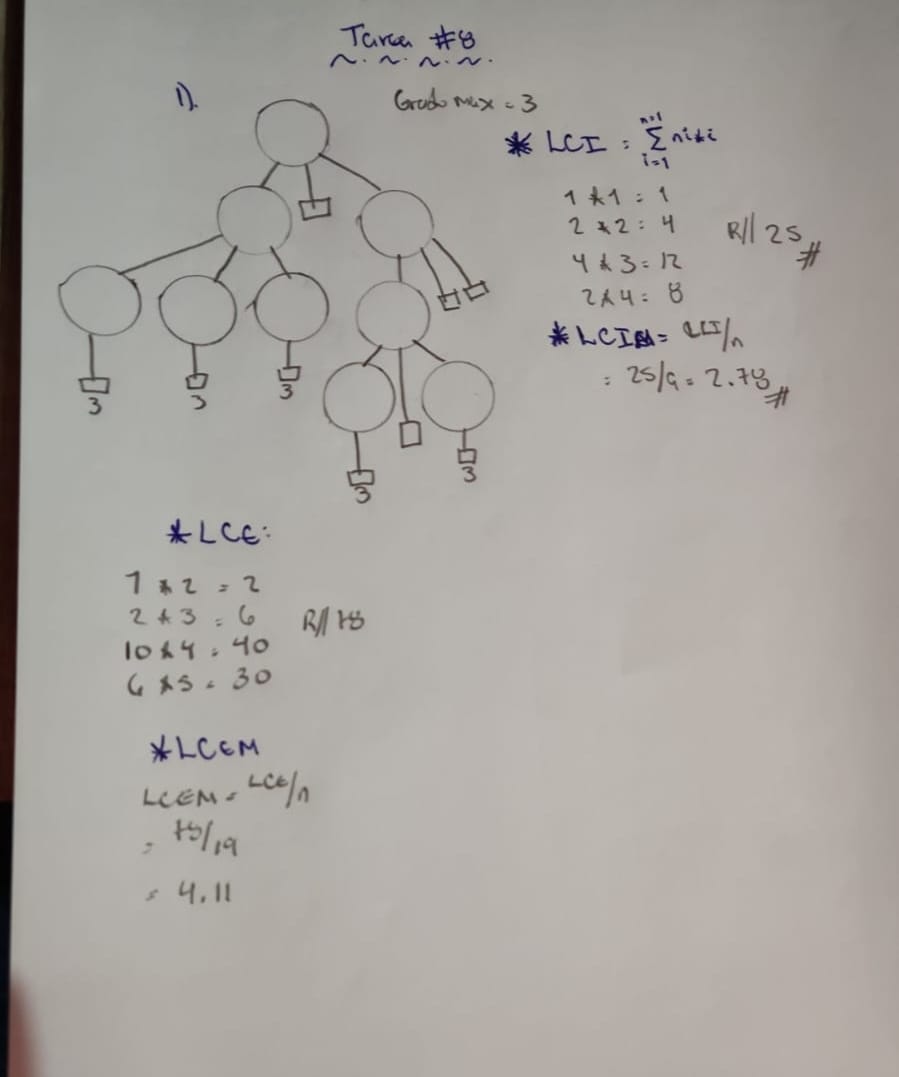 Tarea #8
1).
Grado max = 3
* LCI = n=1 Σ i=1 ni*i
1 * 1 = 1
2 * 2 = 4
4 * 3 = 12
2 * 4 = 8
R// 25 #
* LCIM = LCI/n
= 25/9 = 2.78 #
3
3
3
3
3
* LCE:
1 * 2 = 2
2 * 3 = 6
10 * 4 = 40
6 * 5 = 30
R// 78
* LCEM
LCEM = LCE/n
= 78/19
= 4.11